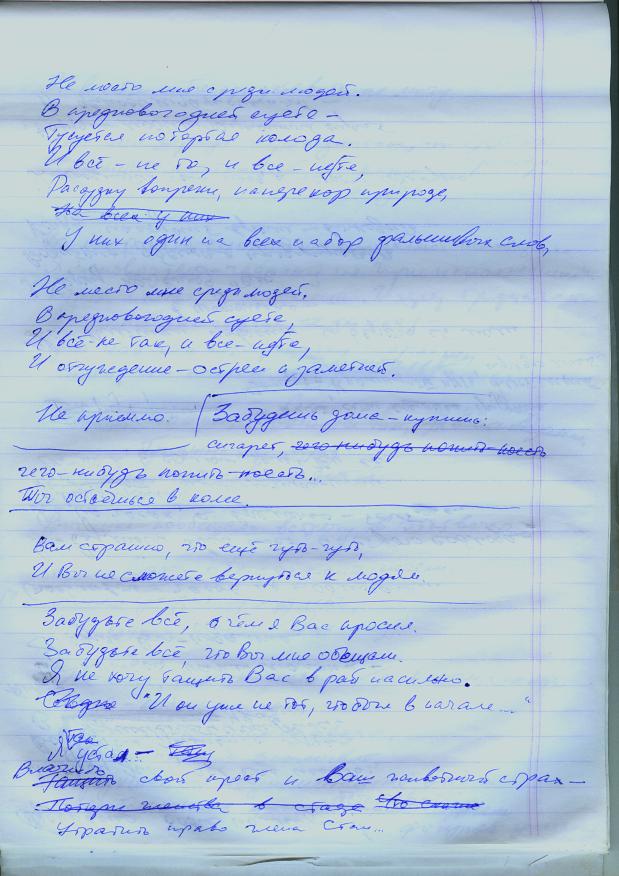 Не место мне среди людей.
В предновогодней суете –
Тусуется потёртая колода.
И всё – не то, и все – не те,
Рассудку вопреки, наперекор природе,
На всех у них
У них один на всех набор фальшивых слов,
Не место мне средь людей.
В предновогодней суете,
И всё – не так, и все – не те,
И отчуждение – острей и заметней.
Не просимо. Забудешь дома – купишь:
сигарет, чего-нибудь попить-поесть
чего-нибудь попить-поесть...
Ты остаёшься в коме.
Вам страшно, что ещё чуть-чуть,
И Вы не сможете вернуться к людям.
Забудьте всё, о чём я Вас просил.
Забудьте всё, что Вы мне обещали.
Я не хочу тащить Вас в рай насильно.
"И он уже не тот, что был в начале..."
Я устал –
Влачить
Тащить свой крест и Ваш животный страх –
Потери членства в стаде Что
Утратить право члена Стаи...